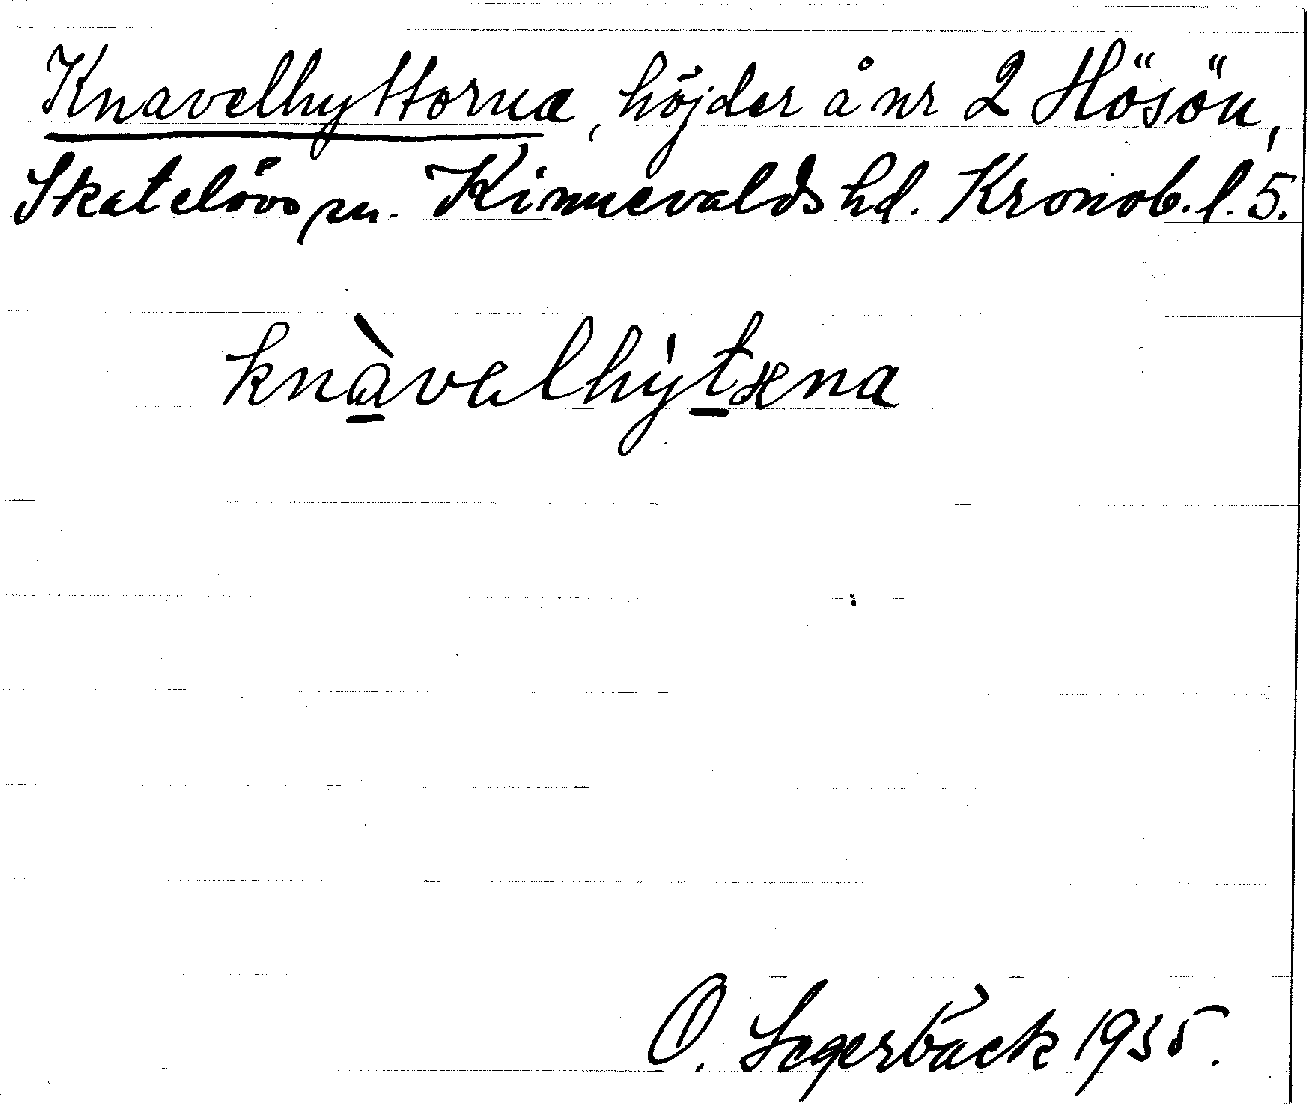 Knavelhyttorna, höjder å nr 2 Hösön,
Skatelövs sn. Kinnevalds hd. Kronob. l. 5.
knàvalhy̍tæna
O. Segerbäck 1935.